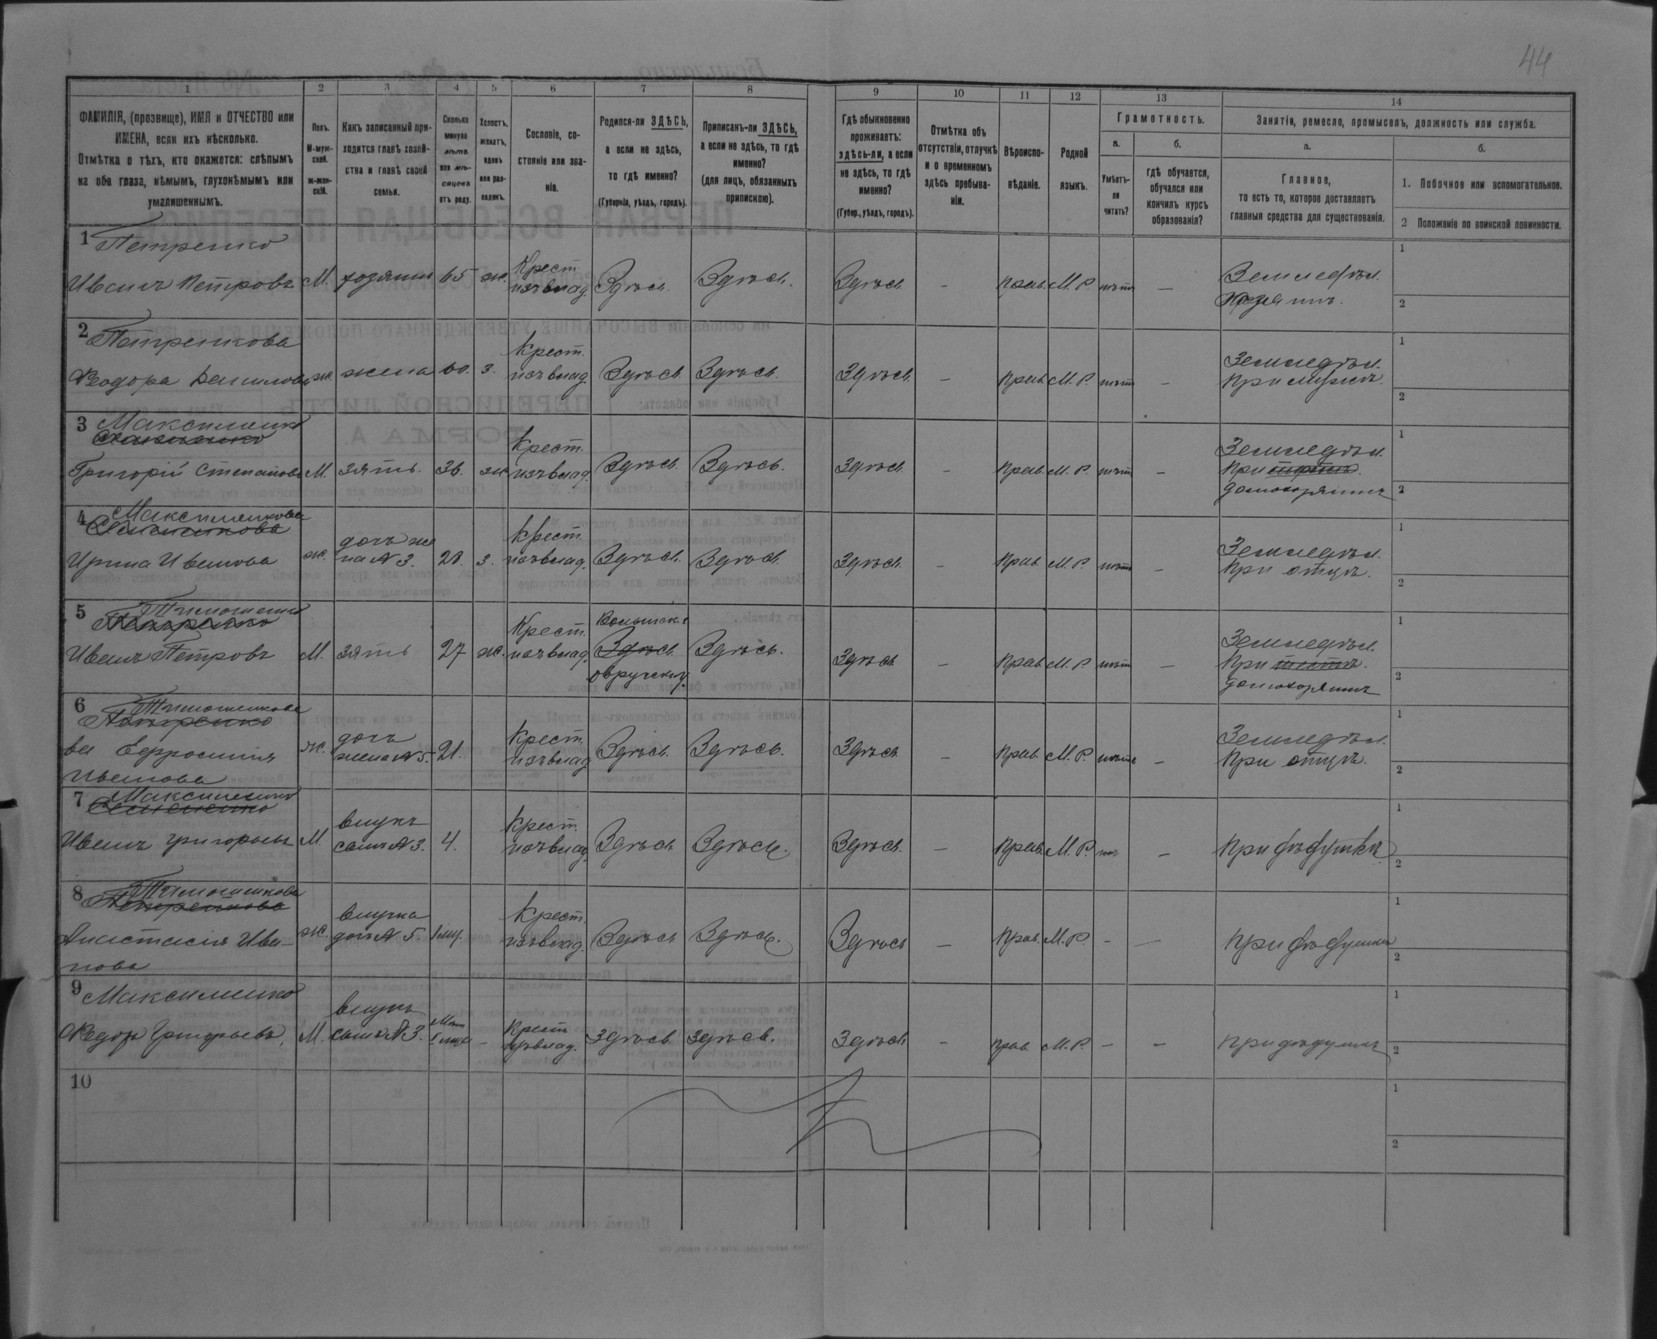 44
1
2
3
4
5
6
7
8
9
10
11
12
13
14
ФАМИЛІЯ, (прозвище), ИМЯ и ОТЧЕСТВО или
ИМЕНА, если ихъ нѣсколько.
Отмѣтка о тѣхъ, кто окажется: слѣпымъ
на оба глаза, нѣмымъ, глухонѣмымъ или
умалишеннымъ.
Полъ.
М-муж-
ской.
ж-жен-
скій.
Какъ записанный при-
ходится главѣ хозяй-
ства и главѣ своей
семьи.
Сколько
минуло
лѣтъ
или мѣ-
сяцевъ
отъ роду.
Холостъ,
женатъ,
вдовъ
или раз-
веденъ.
Сословіе, со-
стояніе или зва-
ніе.
Родился-ли ЗДѢСЬ,
а если не здѣсь,
то гдѣ именно?
(Губернія, уѣздъ, городъ).
Приписанъ-ли ЗДѢСЬ,
а если не здѣсь, то гдѣ
именно?
(для лицъ, обязанныхъ
припискою).
Гдѣ обыкновенно
проживаетъ:
здѣсь-ли, а если
не здѣсь, то гдѣ
именно?
(Губер., уѣздъ, городъ).
Отмѣтка объ
отсутствіи, отлучкѣ
и о временномъ
здѣсь пребыва-
ніи.
Вѣроиспо-
вѣданіе.
Родной
языкъ.
Грамотность.
а.
Умѣетъ-
ли
читать?
б.
гдѣ обучается,
обучался или
кончилъ курсъ
образованія?
Занятіе, ремесло, промыселъ, должность или служба.
а.
Главное,
то есть то, которое доставляетъ
главныя средства для существованія.
б.
1. Побочное или вспомогательное.
2 Положеніе по воинской повинности.
1 Петренко
Иванъ Петровъ М. хозяинъ 65 ж. Крест. изъ влад. Здѣсь. Здѣсь. Здѣсь - прав. М.Р. нѣтъ — Земледѣл. Хозяинъ.
1
2
2 Петренкова
Ѳеодора Данилова ж. жена 60. з. Крест. изъ влад. Здѣсь Здѣсь. Здѣсь. - прав. М.Р. нѣтъ - Земледѣл. при мужѣ.
1
2
3 Максименко
Григорій Степановъ М. зять. 36. ж. Крест. изъ влад. Здѣсь. Здѣсь. Здѣсь - прав. М.Р. нѣтъ - Земледѣл. При домохозяинѣ
1
2
4 Максименкова
Ирина Иванова ж. дочь жена N 3. 28. з. Крест. изъ влад. Здѣсь. Здѣсь. Здѣсь. - прав. М.Р. нѣтъ - Земледѣл. При отцѣ.
1
2
5 Тимошенко
Петренко
Иванъ Петровъ М. зять 27 ж. Крест. изъ влад. Волынск. Здѣсь Овручскій. Здѣсь. Здѣсь - прав. М.Р. нѣтъ — Земледѣл. При домохозяинѣ
1
2
6 Тимошенкова
Петренко
ва Евфросинія
Иванова ж. дочь жена N 5. 21. Крест. изъ влад. Здѣсь. Здѣсь. Здѣсь - прав. М.Р. нѣтъ - Земледѣл. При отцѣ.
1
2
7 Максименко
Иванъ Григорьевъ М. внукъ сынъ N 3. 4. Крест. изъ влад. Здѣсь Здѣсь. Здѣсь. - прав. М.Р. — при дѣдушкѣ
1
2
8 Тимошенкова
Петренкова
Анастасія Ива-
нова ж. внучка дочь N 5. Крест. изъ влад. Здѣсь Здѣсь. Здѣсь - прав. М.Р. - — при дѣдушкѣ
1
2
9 Максименко
Ѳедоръ Григорьевъ. М. внукъ сынъ N 3. - крест. изъ влад. здѣсь здѣсь. здѣсь - прав. М.Р. - - при дѣдушкѣ
1
2
10
1
2